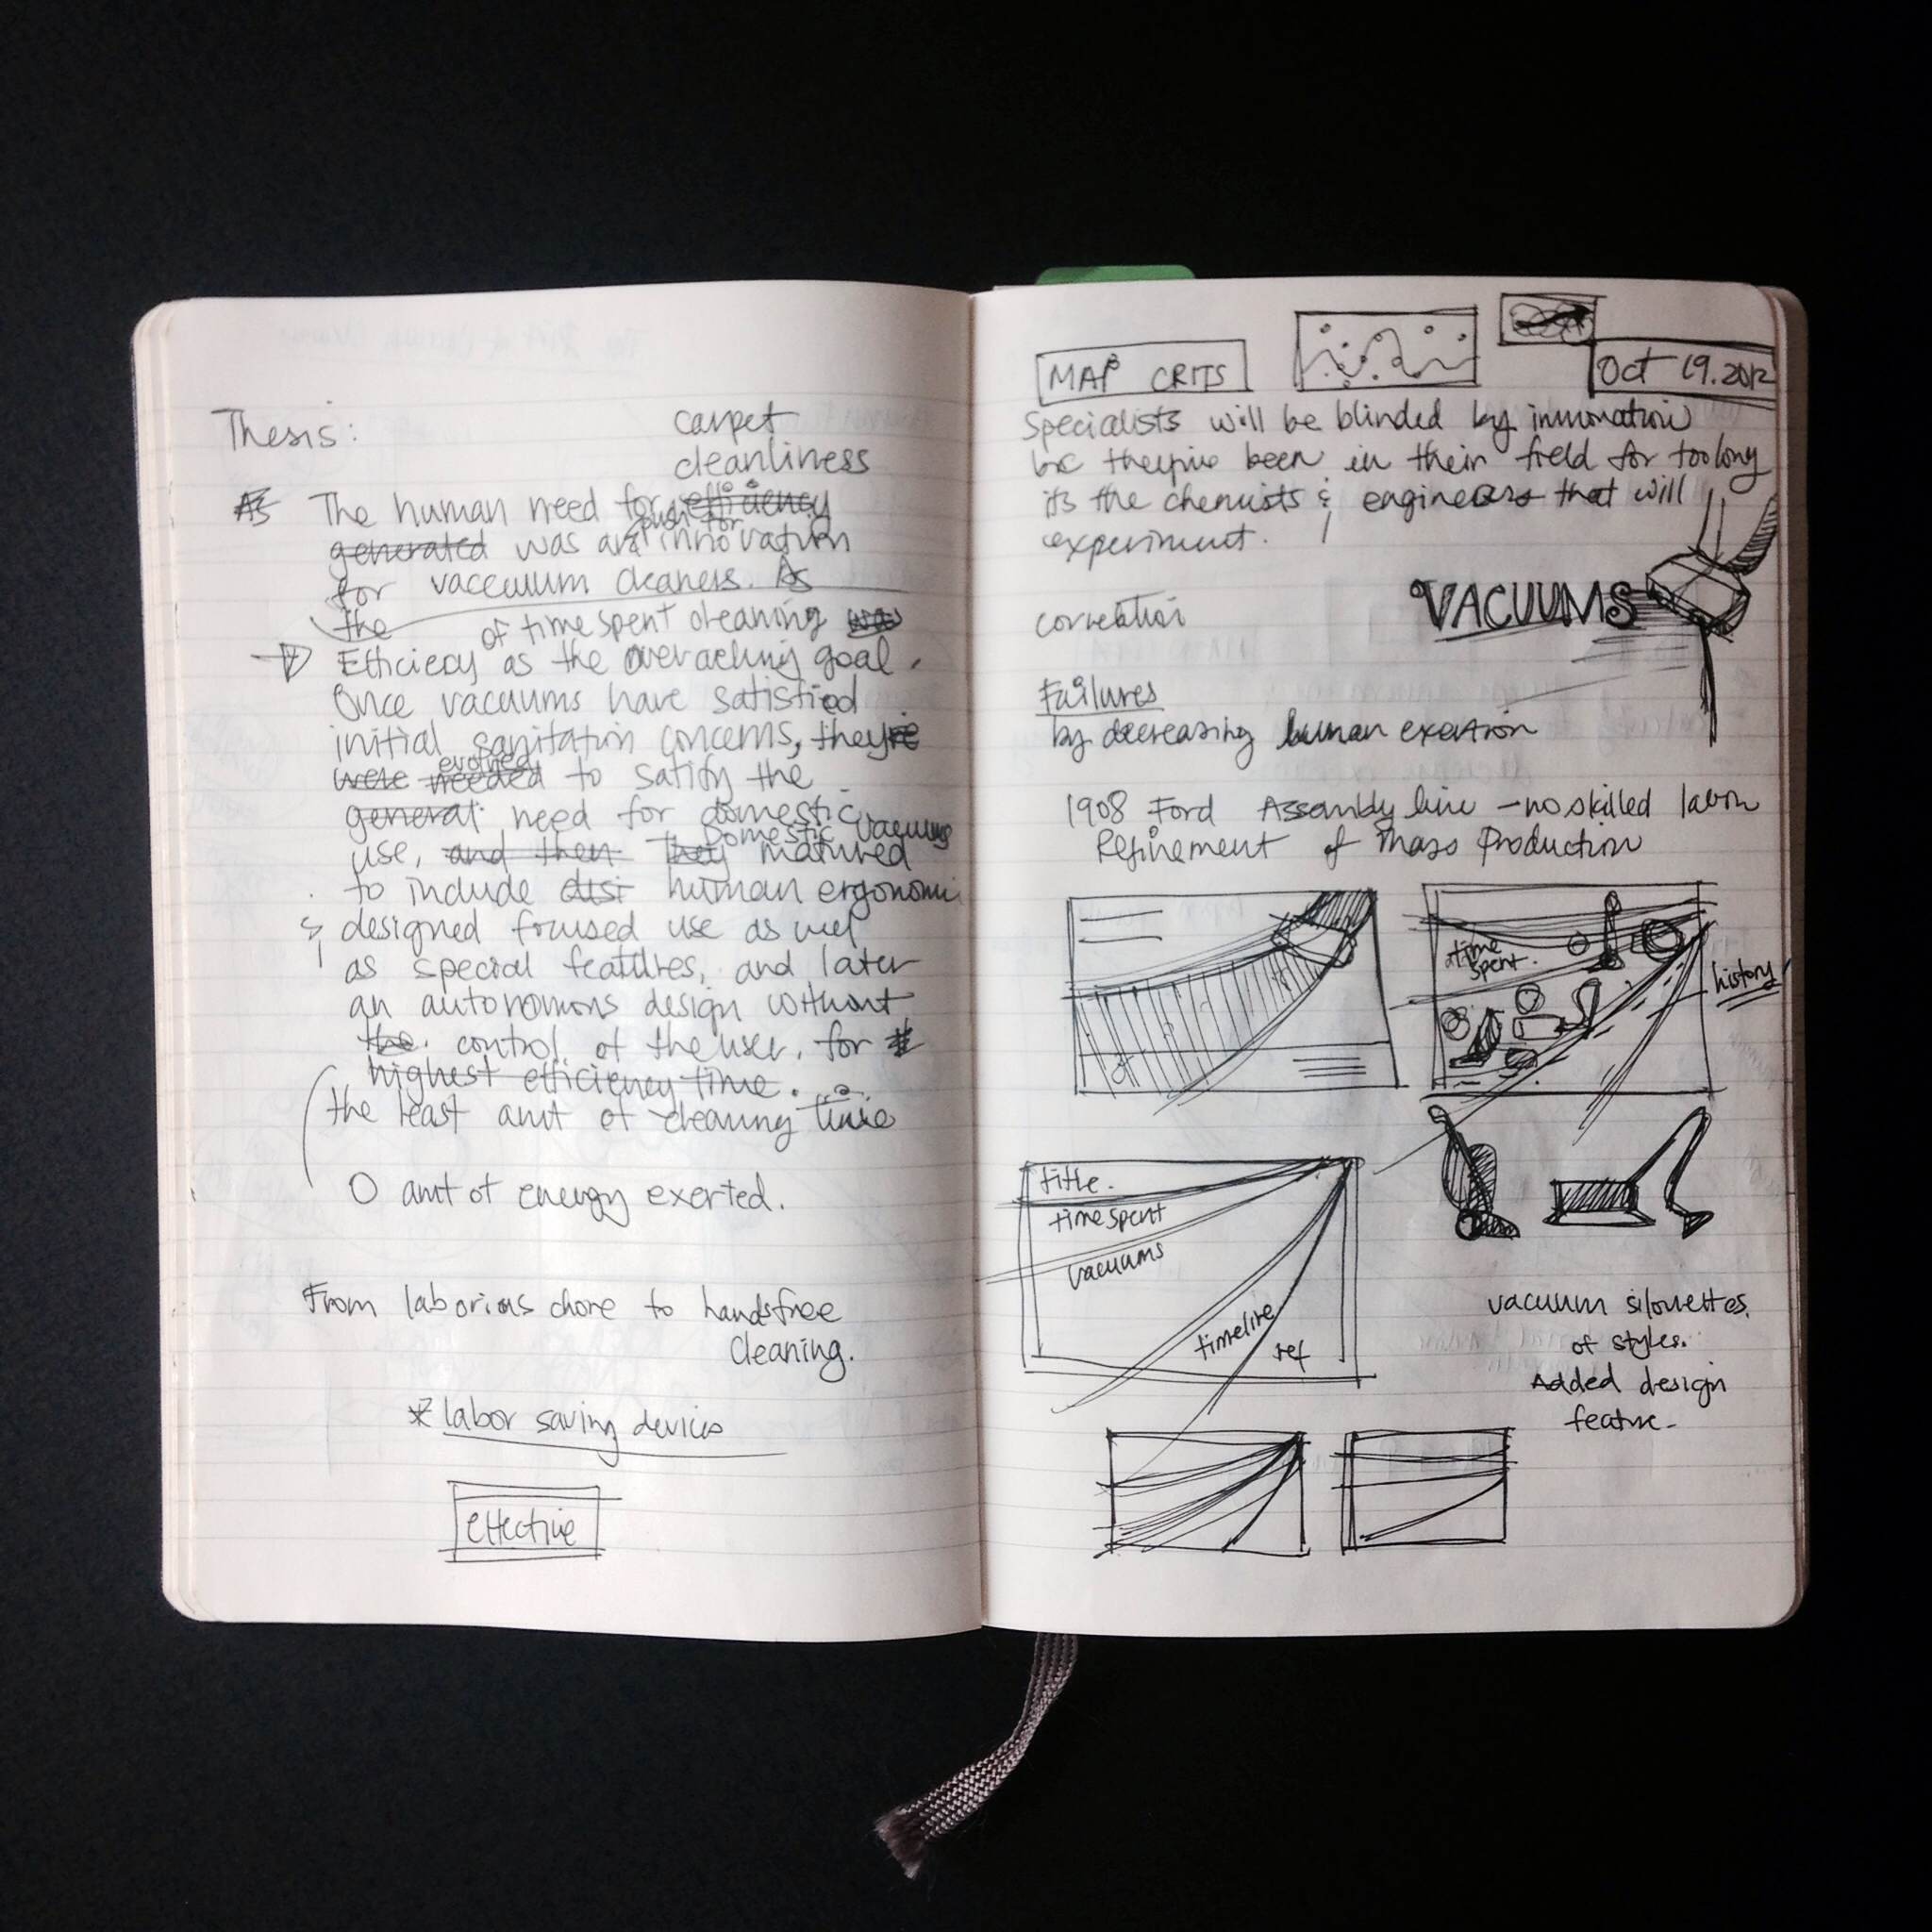 Thesis:
carpet
cleanliness
As The human need for efficiency
push for
generated was an innovation
for vaccuum cleaners. As
the of time spent cleaning was
Efficiecy as the overaching goal.
Once vacuums have satisfied
initial sanitation concerns, they're
evolved
were needed to satify the
general need for domestic
Domestic vacuums
use, and then they matured
to include disi human ergonomi
& designed focused use as well
as special featutres, and later
an autonomous design without
the control of the user, for
highest efficiency time.
the least amt of cleaning time
0 amt of energy exerted.
From laborious chore to handsfree
cleaning.
* labor saving devices
effective
MAP CRITS
Oct 19.2012
Specialists will be blinded by innovation
b/c they've been in their field for too long
its the chemists & engineers that will
experiment.
VACUUMS
correlation
Failures
by decreasing human exertion
1908 Ford Assembly line - no skilled labor
Refinement of Mass Production
time
spent.
history
title.
time spent
vacuums
timeline
ref
vacuum silouettes.
of styles.
Added design
feature-